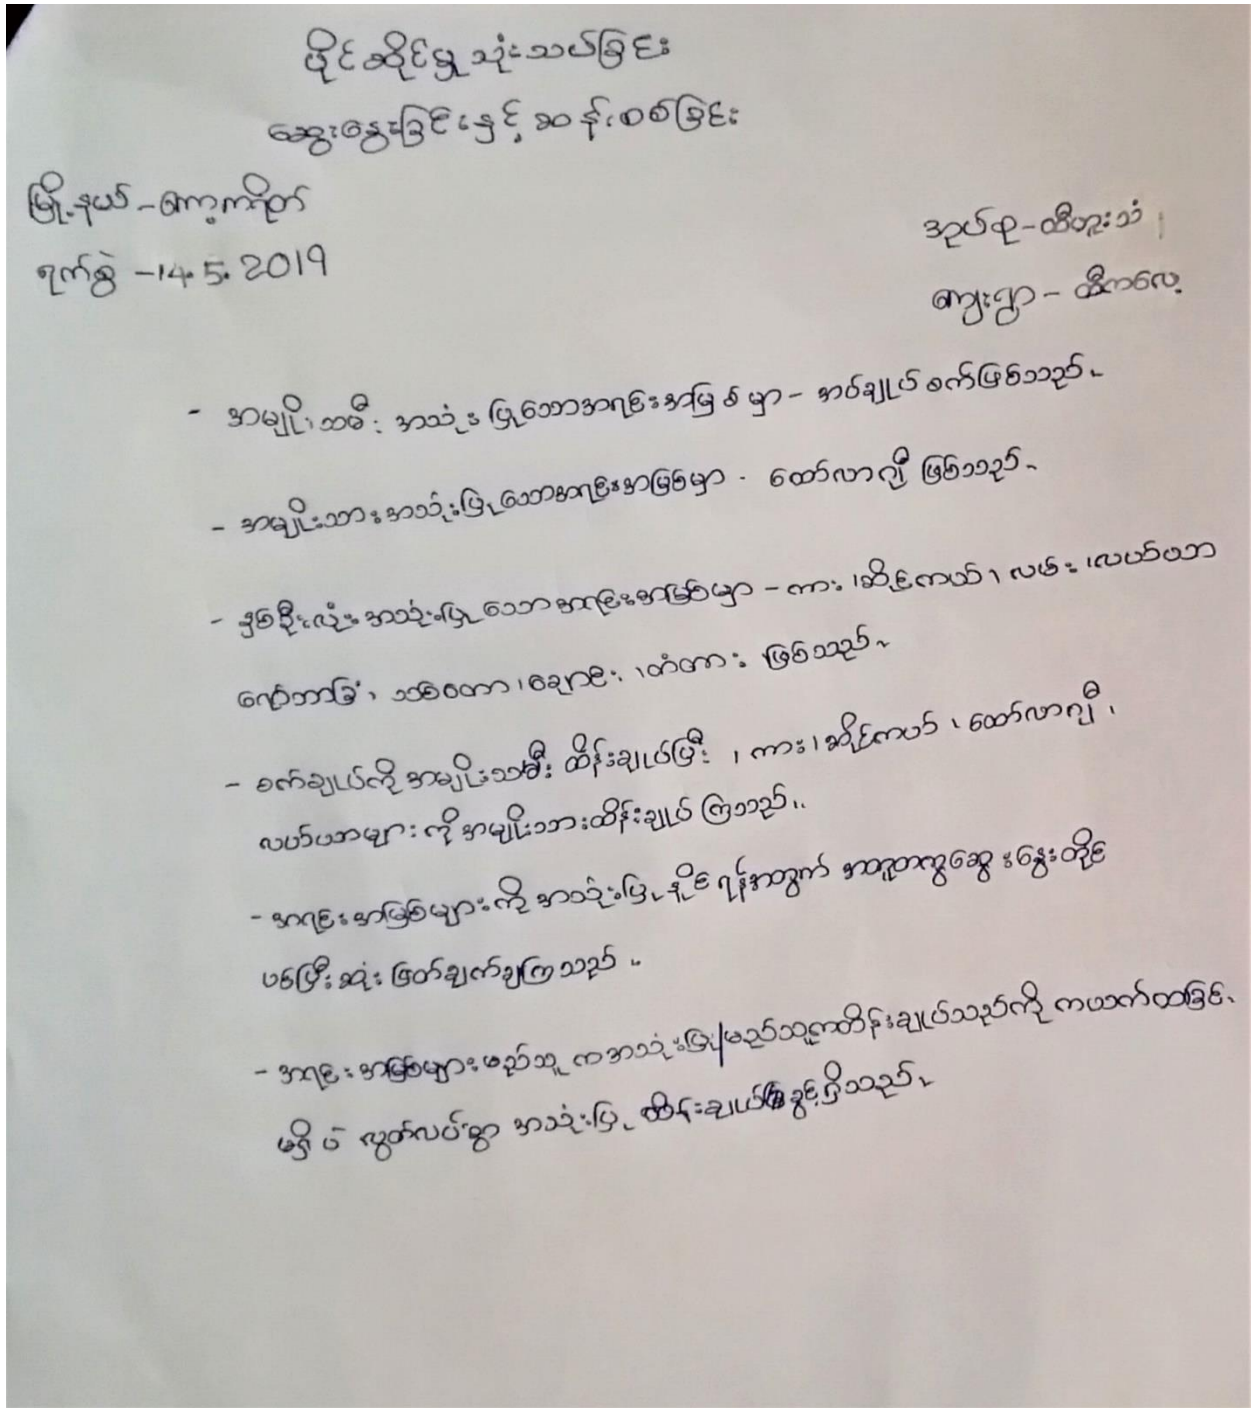 ပိုင်ဆိုင်မှု သုံးသပ်ခြင်း
ဆွေးနွေးခြင်းနှင့် ဆန်းစစ်ခြင်း
မြို့နယ် - ကော့ကရိတ်
အုပ်စု - ထီဟူးသံ
ရက်စွဲ - 14.5.2019
ကျေးရွာ - ထီကလေ့
- အမျိုးသမီး အသုံးပြုသောအရင်းအမြစ်မှာ - အပ်ချုပ်စက်ဖြစ်သည်။
- အမျိုးသားအသုံးပြုသောအရင်းအမြစ်မှာ - ထော်လာဂျီ ဖြစ်သည်။
- နှစ်ဦးလုံးအသုံးပြုသောအရင်းအမြစ်မှာ - ကား၊ ဆိုင်ကယ်၊ လမ်း၊ လယ်ယာ
ရော်ဘာခြံ၊ သစ်တော၊ ချောင်း၊ တံတား ဖြစ်သည်။
- စက်ချုပ်ကို အမျိုးသမီး ထိန်းချုပ်ပြီး ၊ ကား၊ ဆိုင်ကယ် ၊ ထော်လာဂျီ ၊
လယ်ယာများကို အမျိုးသားထိန်းချုပ်ကြသည်။
- အရင်းအမြစ်များကို အသုံးပြုနိုင်ရန်အတွက် အတူတကွဆွေးနွေးတိုင်
ပင်ပြီးဆုံးဖြတ်ချက်ချကြသည်။
- အရင်းအမြစ်များမည်သူကအသုံးပြု/မည်သူကထိန်းချုပ်သည်ကို ကန့်သက်ထားခြင်း
မရှိပဲ လွတ်လပ်စွာ အသုံးပြု ထိန်းချုပ်ခွင့်ရှိသည်။